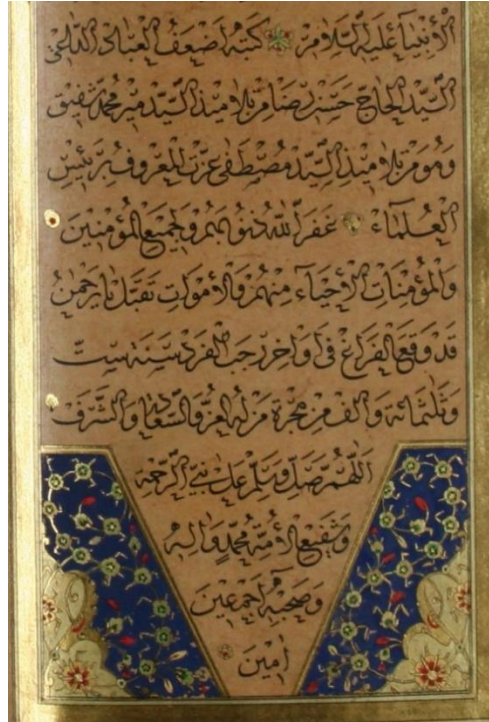 الأنبياء عليه السلام كتبه أضعف العباد الداعي
السيد الحاج حسن رضا من تلاميذ السيد مير محمد شفيق
وهو من تلاميذ السيد مصطفى عزت المعروف برئيس
العلماء غفر الله ذنوبهم ولجميع المؤمنين
والمؤمنات الأحياء منهم والأموات تقبل يا رحمن
قد وقع الفراغ في أواخر رجب الفرد سنة ست
وثلثمائة وألف من هجرة من له العز والسعادة والشرف
اللهم صل وسلم على نبي الرحمة
وشفيع الأمة محمد وآله
وصحبه أجمعين
آمين